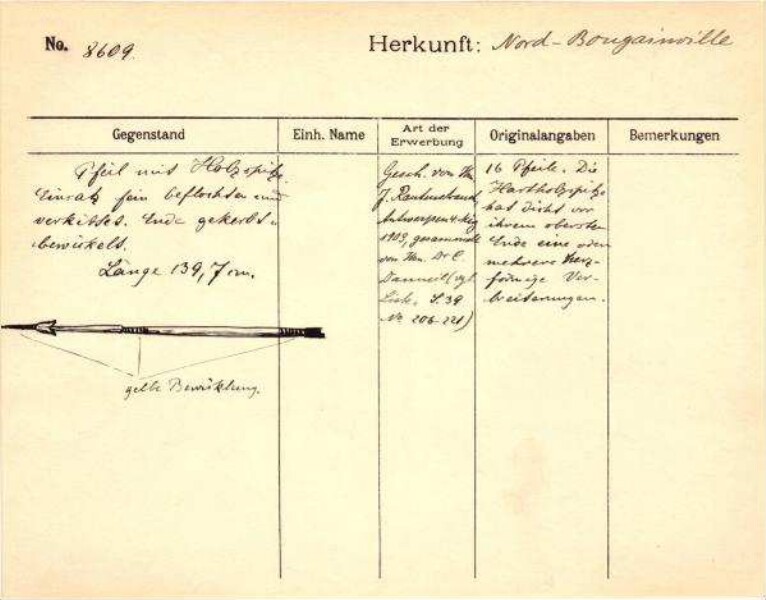 No. 8609.
Herkunft: Nord-Bougainville
Gegenstand
Einh. Name
Art der Erwerbung
Originalangaben
Bemerkungen
Pfeil mit Holzspitze.
Einsatz fein beflochten und
verkittet. Ende gekerbt u.
bewickelt.
Länge 139,7 cm.
gelbe Bewicklung.
Gesch. von Hn.
J. Rautenstrauch
Antwerpen
1903, gesammelt
von Hn. Dr C.
Danneil (vgl.
Liste, S. 39
No 206-221)
16 Pfeile. Die
Hartholzspitze
hat dicht vor
ihrem obersten
Ende eine oder
mehrere herz-
förmige Ver-
breiterungen.